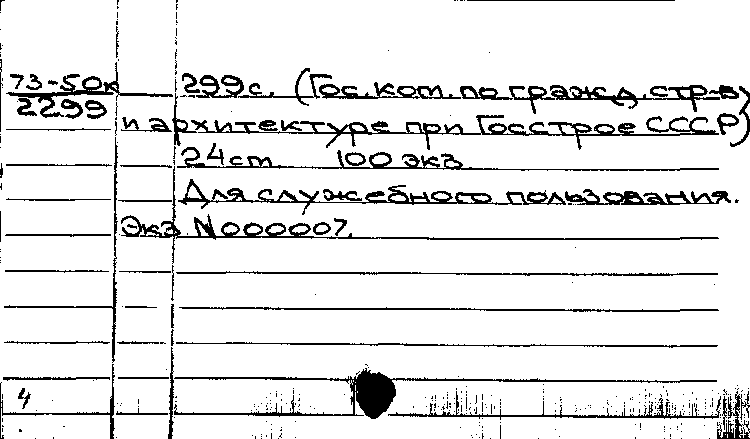 73-50к 299с. (Гос. ком. по гражд. стр-в)
2299
и архитектуре при Госстрое СССР)
24 см 100 экз
Для служебного пользования.
Экз N000007.
4